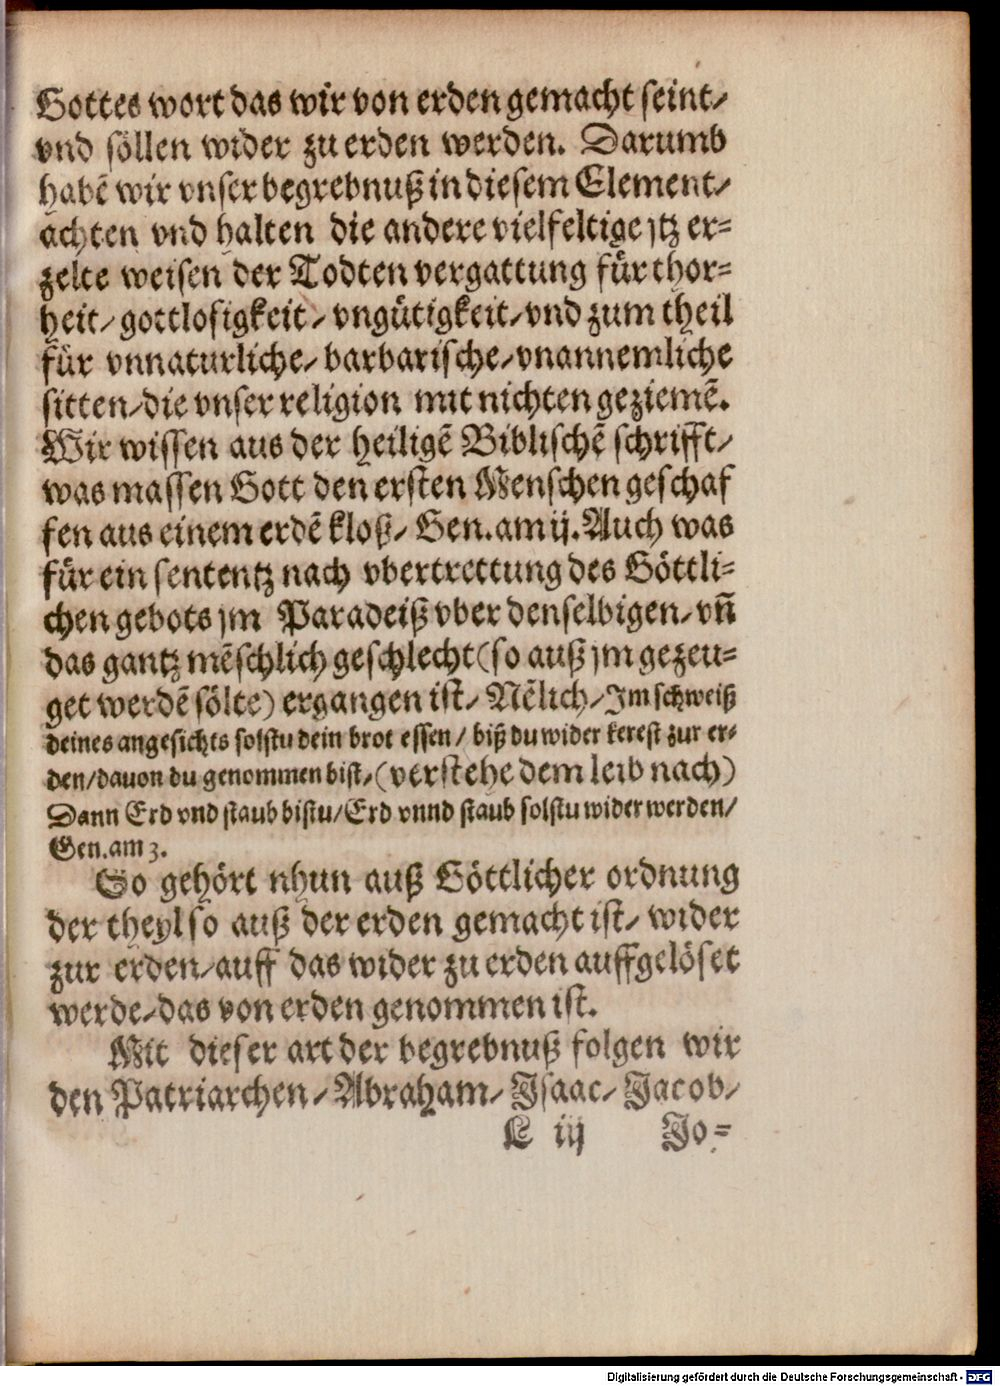 Gottes wort das wir von erden gemacht seint/
vnd söllen wider zu erden werden. Darumb
habē wir vnser begrebnuß in diesem Element/
achten vnd halten die andere vielfeltige jtz er=
zelte weisen der Todten vergattung für thor=
heit/gottlosigkeit/vngütigkeit/vnd zum theil
für vnnaturliche/barbarische/vnannemliche
sitten/die vnser religion mit nichten geziemē.
Wir wissen aus der heiligē Biblischē schrifft/
was massen Gott den ersten Menschen geschaf
fen aus einem erdē kloß/ Gen.am ij. Auch was
für ein sententz nach vbertrettung des Göttli=
chen gebots jm Paradeiß vber denselbigen/ vñ
das gantz mēschlich geschlecht (so auß jm gezeu=
get werdē sölte) ergangen ist/ Nēlich/ Im schweiß
deines angesichts solstu dein brot essen/ biß du wider kerest zur er=
den/dauon du genommen bist/(verstehe dem leib nach)
Dann Erd vnd staub bistu/Erd vnnd staub solstu wider werden/
Gen.am 3.
So gehört nhun auß Göttlicher ordnung
der theyl so auß der erden gemacht ist/ wider
zur erden/auff das wider zu erden auffgelöset
werde/das von erden genommen ist.
Mit dieser art der begrebnuß folgen wir
den Patriarchen/Abraham/ Isaac/ Jacob/
L iij Jo=
Digitalisierung gefördert durch die Deutsche Forschungsgemeinschaft - DFG